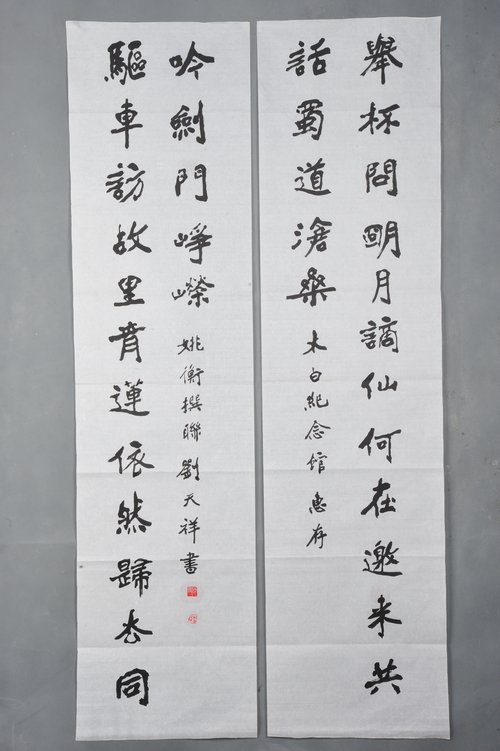 舉杯問明月謫仙何在邀来共
話蜀道滄桑 太白紀念馆惠存
吟劍門崢嶸 姚衡撰聯 劉天祥書
驅車訪故里青蓮依然歸去同